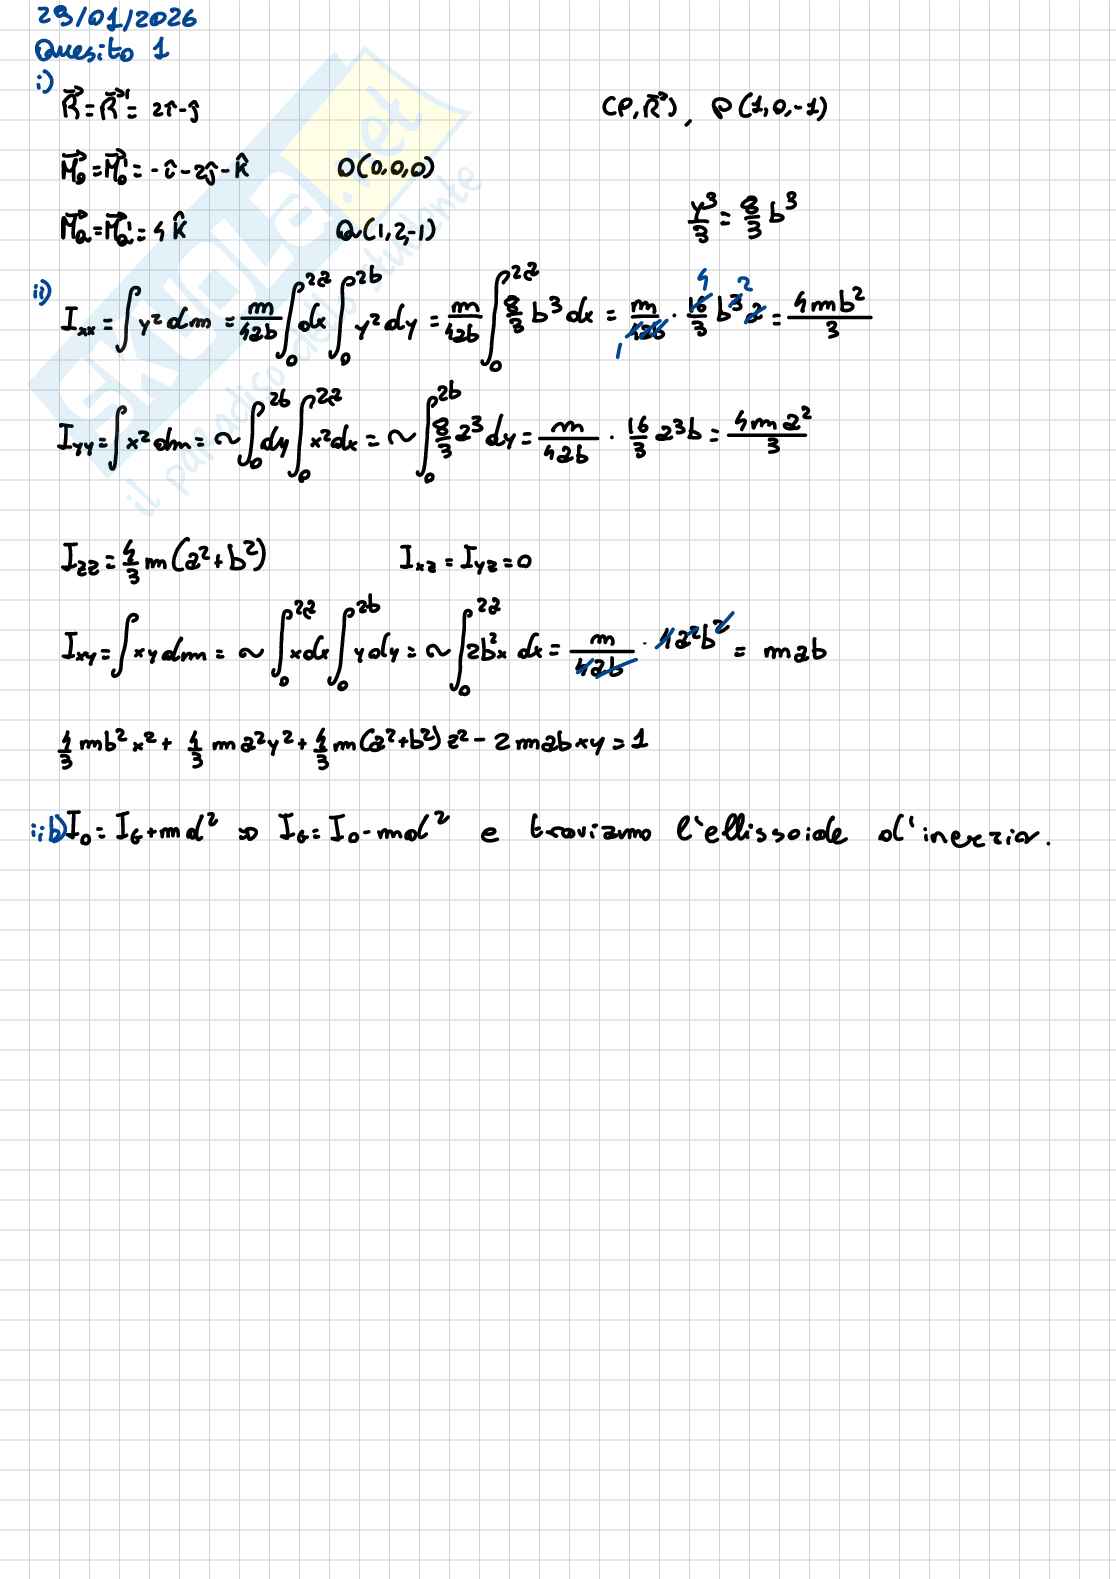 29/01/2026
Quesito 1
i)
R⃗ = R⃗' = 2î - ĵ (P, R⃗), P(1,0,-1)
M⃗₀ = M⃗₀' = -î - 2ĵ - k̂ O(0,0,0)
M⃗Q = M⃗Q' = 4k̂ Q(1,2,-1) y³/3 = 8/3 b³
ii) Ixx = ∫ y² dm = m/4ab ∫₀²ᵃ dx ∫₀²ᵇ y² dy = m/4ab ∫₀²ᵃ 8/3 b³ dx = m/4ab · 16/3 b³ a = 4mb²/3
Iyy = ∫ x² dm = ~ ∫₀²ᵇ dy ∫₀²ᵃ x² dx = ~ ∫₀²ᵇ 8/3 a³ dy = m/4ab · 16/3 a³b = 4ma²/3
Izz = 4/3 m(a² + b²) Ixz = Iyz = 0
Ixy = ∫ xy dm = ~ ∫₀²ᵃ x dx ∫₀²ᵇ y dy = ~ ∫₀²ᵃ 2b²x dx = m/4ab · 4a²b² = mab
4/3 mb²x² + 4/3 ma²y² + 4/3 m(a²+b²)z² - 2mabxy = 1
iib) I₀ = IG + md² ⇒ IG = I₀ - md² e troviamo l'ellissoide d'inerzia.
SKUOLA.net
il paradiso dello studente